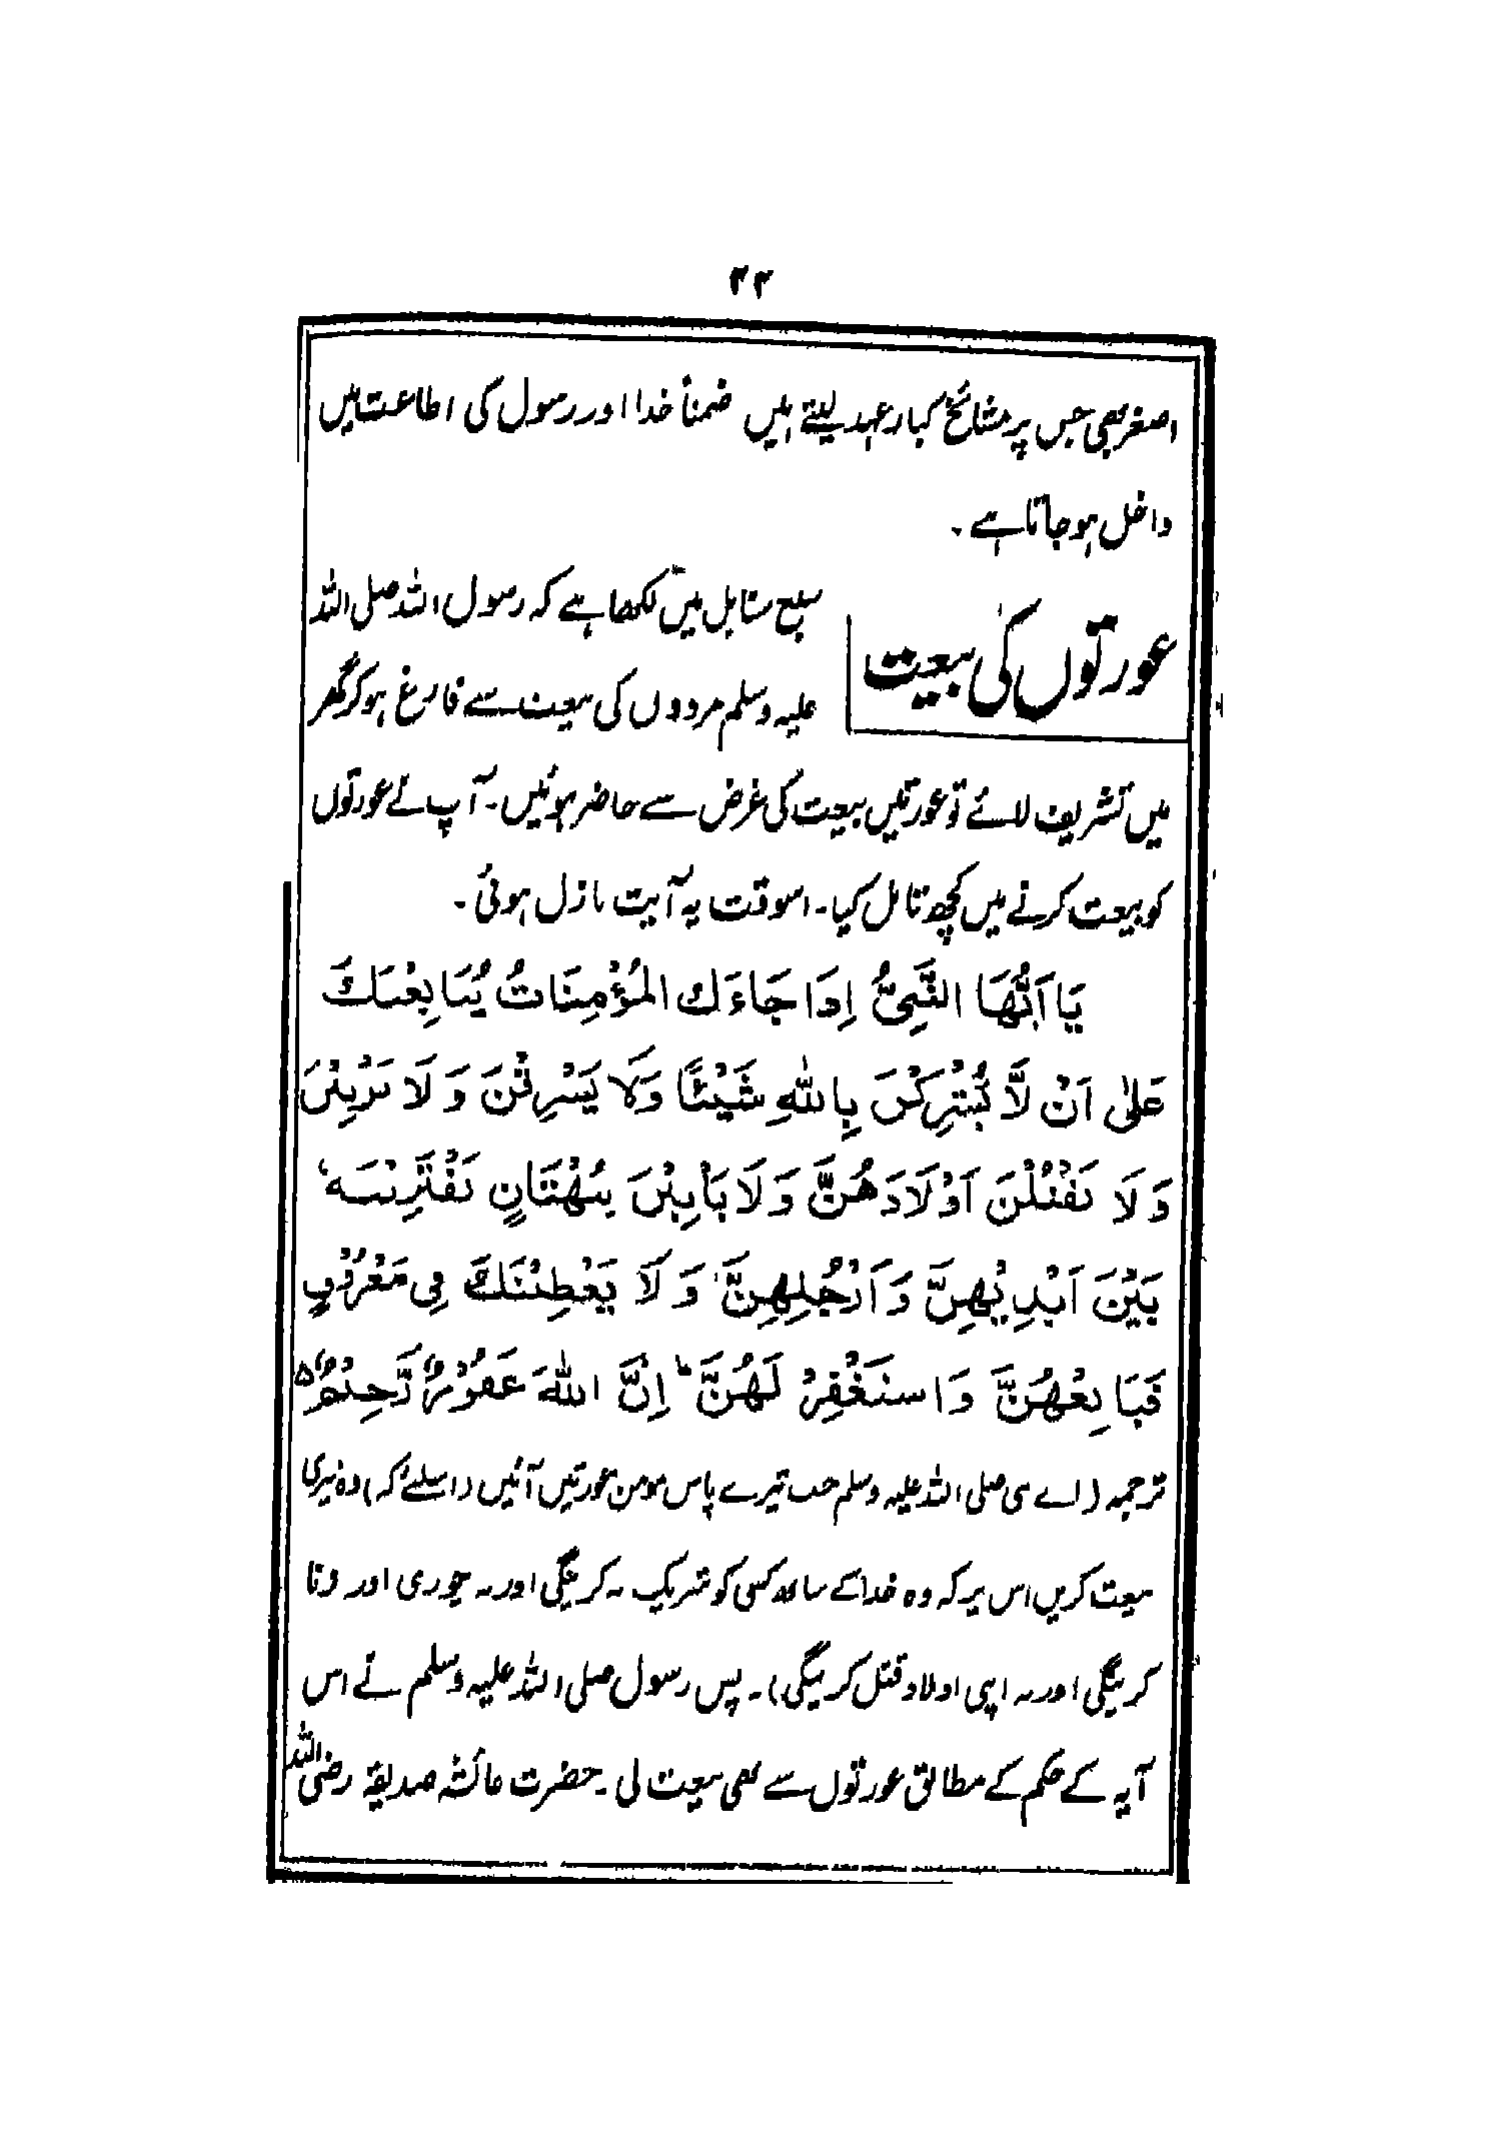 ۲۲
اصغر بھی جس پر مشائخ کبار عہد لیتے ہیں ضمناً خدا اور رسول کی اطاعت میں
داخل ہو جاتا ہے ۔
عورتوں کی بیعت
سبع سنابل میں لکھا ہے کہ رسول اللہ صلی اللہ
علیہ وسلم مردوں کی بیعت سے فارغ ہو کر گھر
میں تشریف لائے تو عورتیں بیعت کی غرض سے حاضر ہوئیں۔ آپ نے عورتوں
کو بیعت کرنے میں کچھ تامل کیا۔ اسوقت یہ آیت نازل ہوئی ۔
يَا اَيُّهَا النَّبِيُّ اِذَا جَاءَكَ الْمُؤْمِنَاتُ يُبَايِعْنَكَ
عَلٰى اَنْ لَّا يُشْرِكْنَ بِاللّٰهِ شَيْئًا وَلَا يَسْرِقْنَ وَلَا يَزْنِيْنَ
وَلَا يَقْتُلْنَ اَوْلَادَهُنَّ وَلَا يَأْتِيْنَ بِبُهْتَانٍ يَفْتَرِيْنَهٗ
بَيْنَ اَيْدِيْهِنَّ وَاَرْجُلِهِنَّ وَلَا يَعْصِيْنَكَ فِي مَعْرُوْفٍ
فَبَايِعْهُنَّ وَاسْتَغْفِرْ لَهُنَّ ؕ اِنَّ اللّٰهَ غَفُوْرٌ رَّحِيْمٌ ۵
ترجمہ (اے نبی صلی اللہ علیہ وسلم جب تیرے پاس مومن عورتیں آئیں (اسلئے کہ) وہ تیری
بیعت کریں اس پر کہ وہ خدا کے ساتھ کسی کو شریک نہ کرینگی اور نہ چوری اور زنا
کرینگی اور نہ اپنی اولاد قتل کرینگی)۔ پس رسول صلی اللہ علیہ وسلم نے اس
آیہ کے حکم کے مطابق عورتوں سے بھی بیعت لی ۔ حضرت عائشہ صدیقہ رضی اللہ